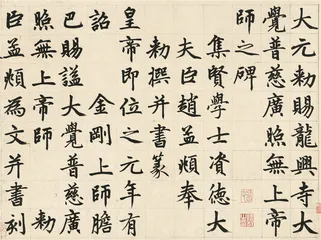 大元敕賜龍興寺大
覺普慈廣照無上帝
師之碑
集賢學士資德大
夫臣趙孟頫奉
敕撰并書篆
皇帝即位之元年有
詔金剛上師膽
巴賜謚大覺普慈廣
照無上帝師敕
臣孟頫為文并書刻